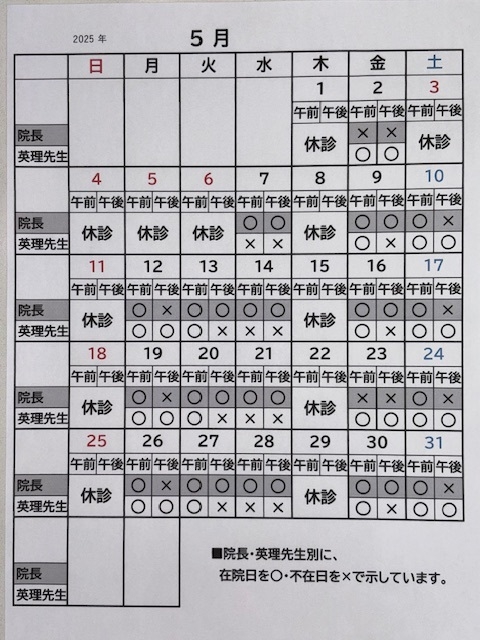 2025 年 5 月
日 月 火 水 木 金 土
1 2 3
午前 午後 午前 午後 午前 午後
院長 休診 × × 休診
英理先生 ○ ○
4 5 6 7 8 9 10
午前 午後 午前 午後 午前 午後 午前 午後 午前 午後 午前 午後 午前 午後
院長 休診 休診 休診 ○ ○ 休診 ○ ○ ○ ×
英理先生 × × ○ × ○ ○
11 12 13 14 15 16 17
午前 午後 午前 午後 午前 午後 午前 午後 午前 午後 午前 午後 午前 午後
院長 休診 ○ × ○ ○ ○ ○ 休診 ○ ○ ○ ×
英理先生 ○ ○ ○ × × × ○ × ○ ○
18 19 20 21 22 23 24
午前 午後 午前 午後 午前 午後 午前 午後 午前 午後 午前 午後 午前 午後
院長 休診 ○ × ○ ○ ○ ○ 休診 × × ○ ×
英理先生 ○ ○ ○ × × × ○ ○ ○ ○
25 26 27 28 29 30 31
午前 午後 午前 午後 午前 午後 午前 午後 午前 午後 午前 午後 午前 午後
院長 休診 ○ × ○ ○ ○ ○ 休診 ○ ○ ○ ×
英理先生 ○ ○ ○ × × × ○ × ○ ○
■院長・英理先生別に、
在院日を○・不在日を×で示しています。
院長
英理先生